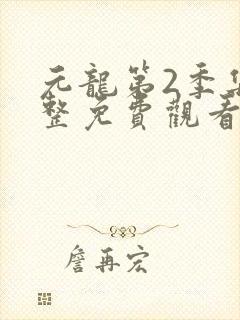 元龍第2季集
整免費觀看
詹再宏